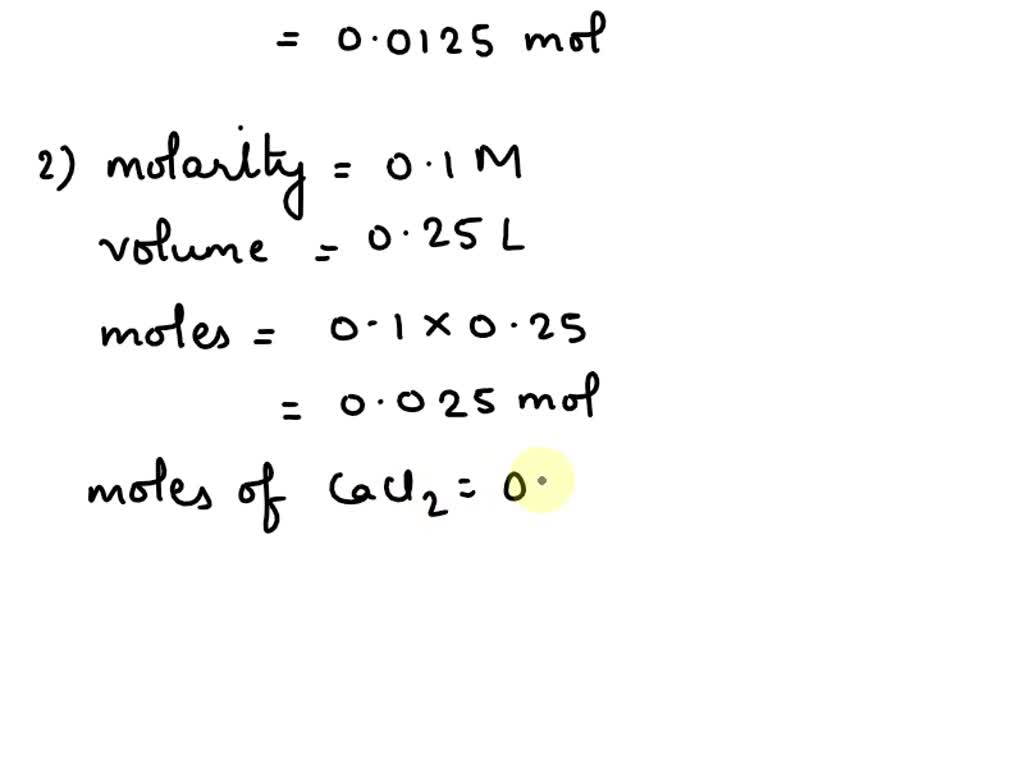 = 0.0125 mol
2) molarity = 0.1 M
volume = 0.25 L
moles = 0.1 × 0.25
= 0.025 mol
moles of CaCl2 = 0.